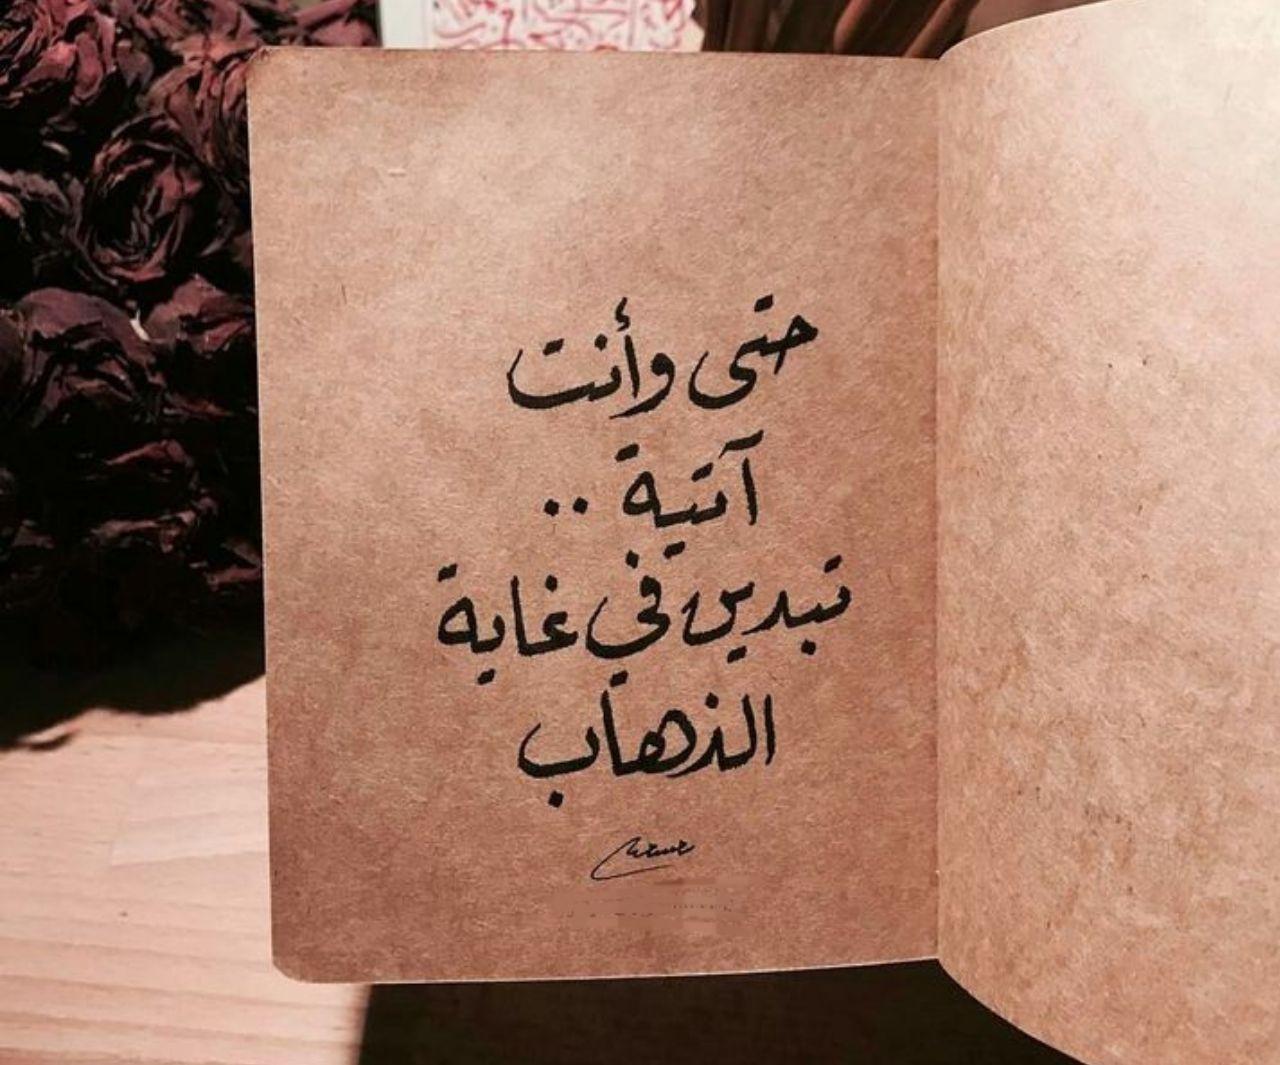 حتى وأنت
آتية ..
تبدين في غاية
الذهاب